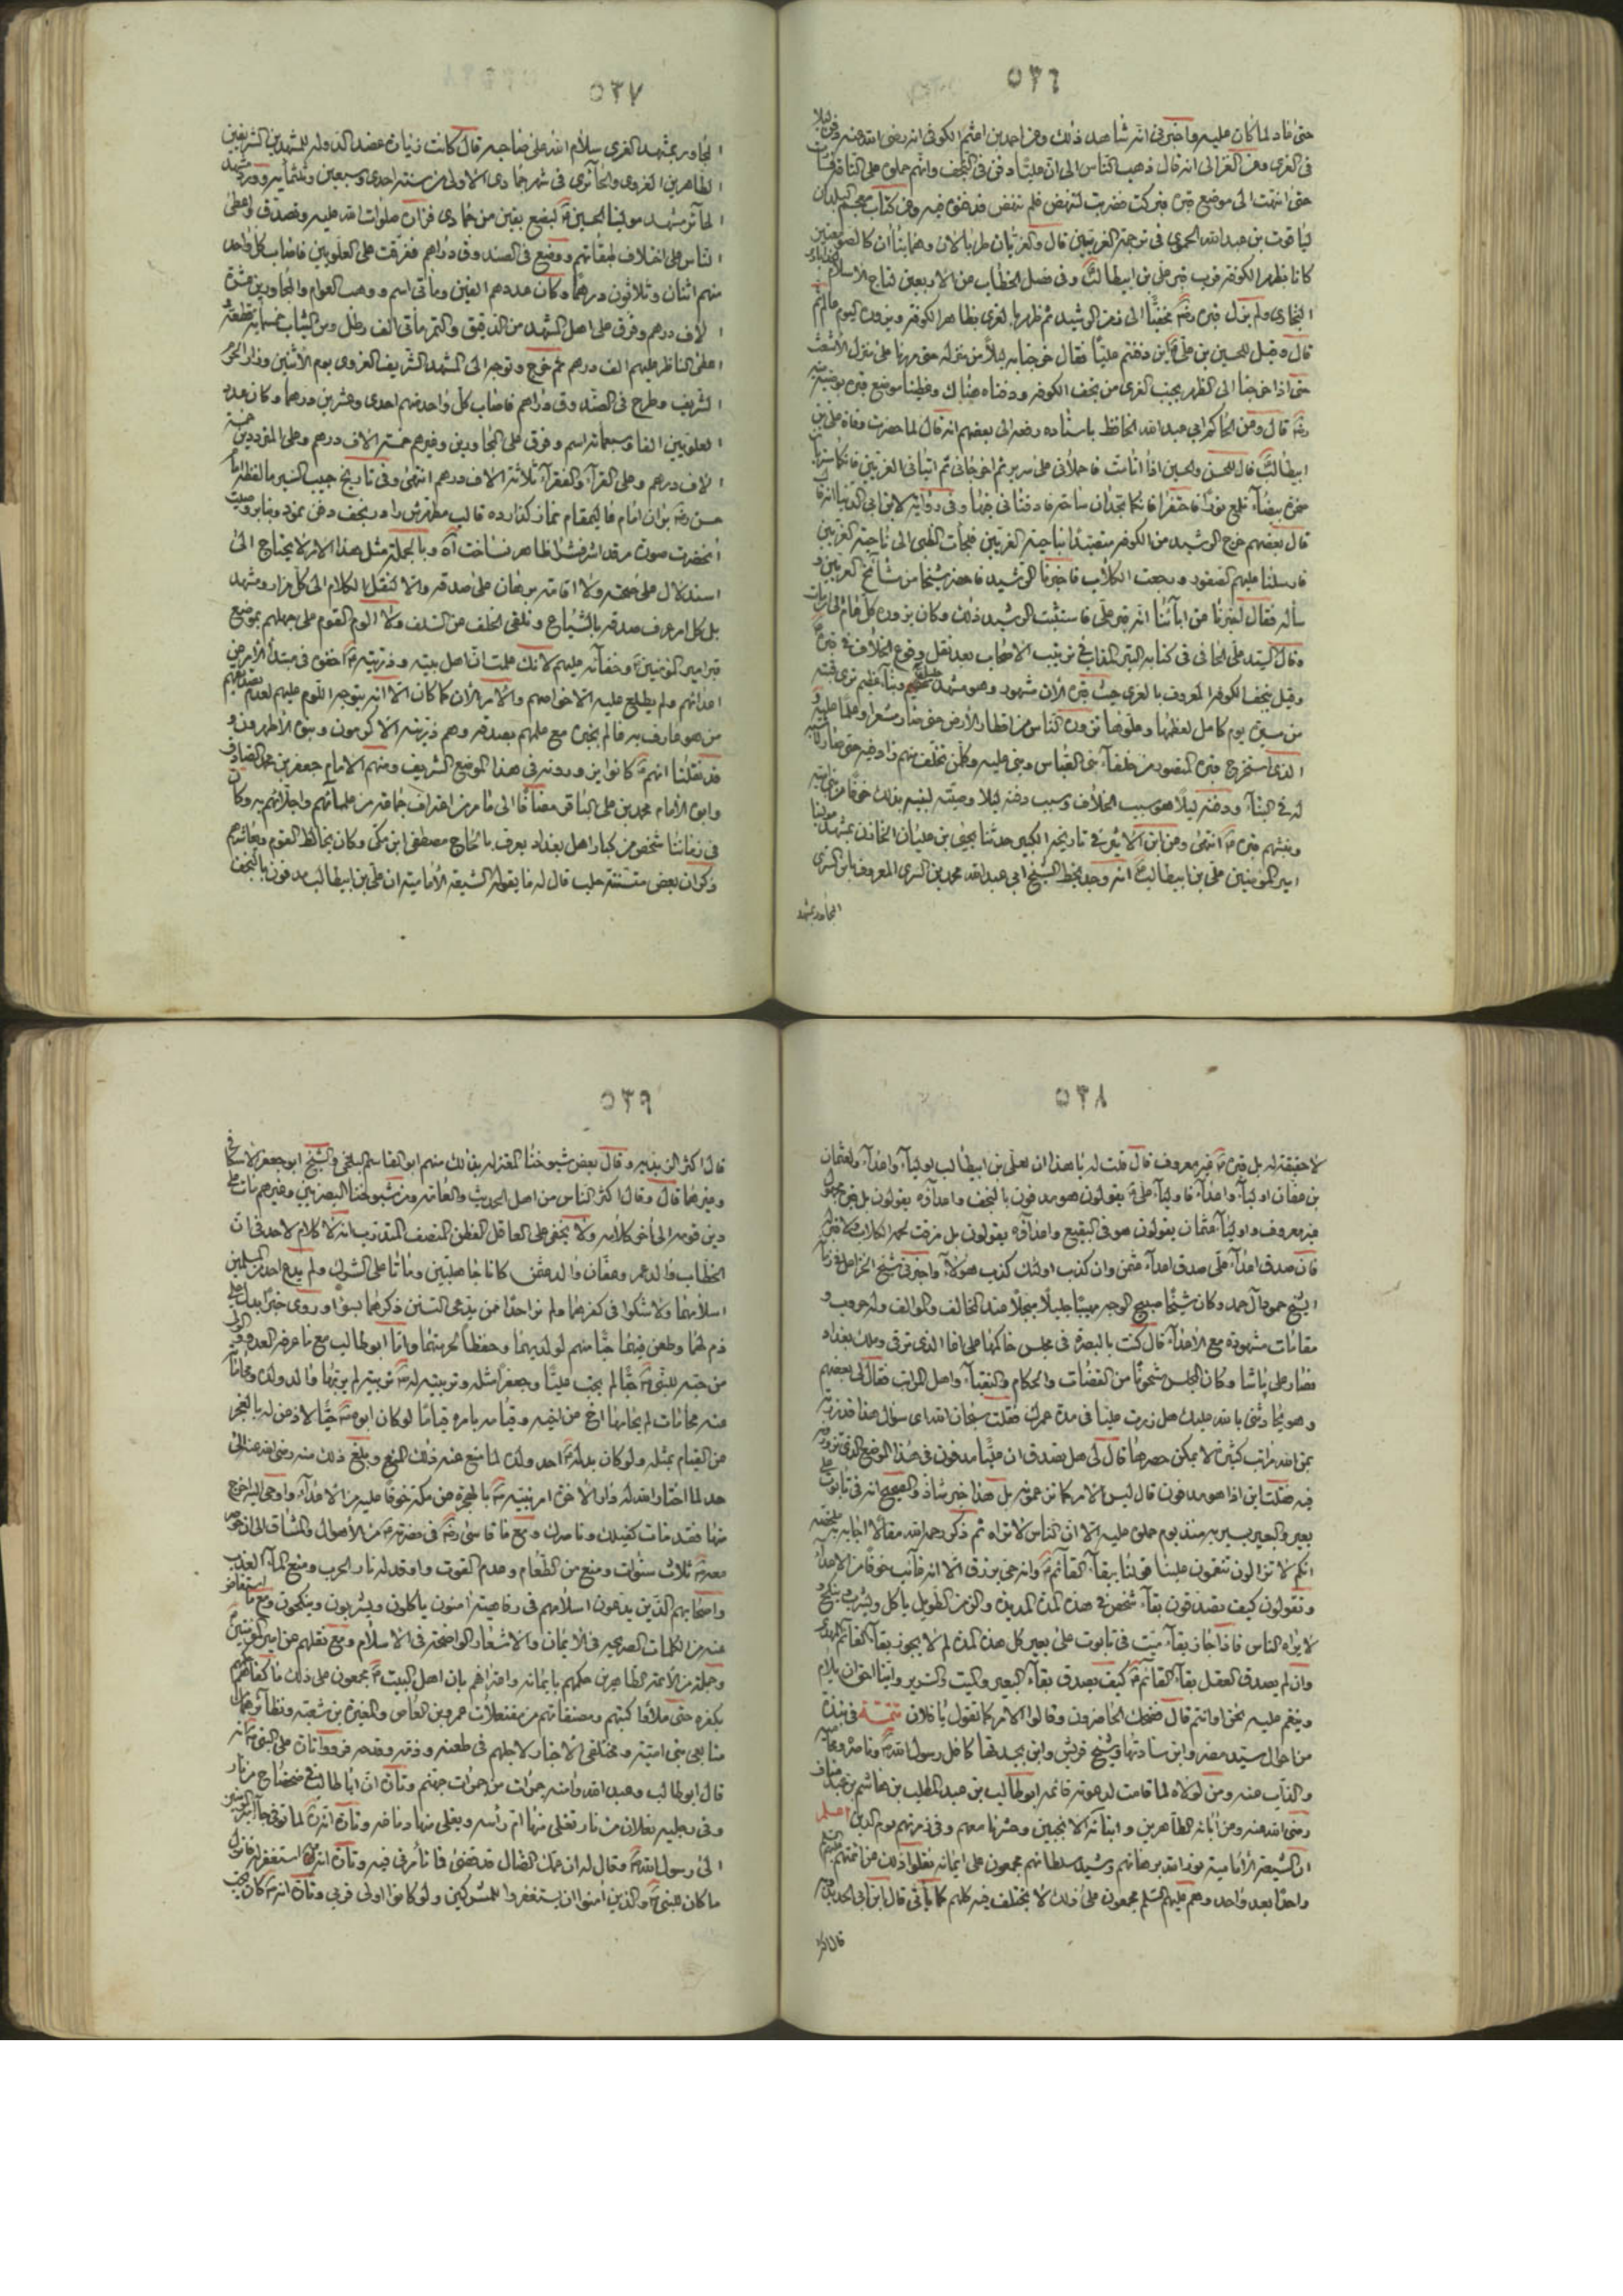 ٥٣٦
حتى عاد لما كان عليه واخبرنى انه شاهد ذلك وعن احمد بن اعثم الكوفى انه رضى الله عنه دفن ليلا
فى الغرى وعن الغزالى انه قال ذهب الناس الى ان عليّا دفن فى النجف وانهم حملوه على الناقة فسارت
حتى انتهت الى موضع قبره فبركت فضربت لتنهض فلم تنهض فدفنوه فيه وفى كتاب معجم البلدان
لياقوت بن عبد الله الحموى فى ترجمة الغريين قال والغريان طربالان وهما بناان كالصومعتين
كانا بظهر الكوفة قرب قبر على بن ابيطالب وفى فصل الخطاب عن الاربعين لتاج الاسلام
البخارى ولم يزل قبره رضه مخفيّا الى زمن الرشيد ثم ظهر بالغرى بظاهر الكوفة ويزوره اليوم عالم ثم
قال وقيل للحسين بن على اين دفنتم عليّا فقال خرجنا به ليلا من منزله حتى مررنا على منزل الاشعث
حتى اذا خرجنا الى الظهر بجنب الغرى من نجف الكوفة ودفناه هناك وغطينا موضع قبره بوصية منه
رضه قال وعن الحاكم ابى عبد الله الحافظ باسناده رفعه الى بعضهم انه قال لما حضرت وفاة على بن
ابيطالب قال للحسن والحسين اذا انا مت فاحملانى على سرير ثم اخرجانى ثم ائتيانى الغريين فانكما ستريان
صخرة بيضاء تلمع نورا فاحتفرا فانكما تجدان ساحة فادفنانى فيها وفى رواية لابن ابى الدنيا انه قال
قال بعضهم خرج الرشيد من الكوفة متصيدا بناحية الغريين فلجأت الظبى الى ناحية الغريين
فارسلنا عليهم الصقور ورجعت الكلاب فاخبرنا الرشيد فاحضر شيخا من مشائخ الغريين و
سأله فقال اخبرنا عن ابائنا انه قبر على فاستثبت الرشيد ذلك وكان يزوره كل عام الى ان مات
وقيل بنجف الكوفة المعروف بالغرى حيث قبره الان مشهور وهو مشهد عظيم وبناء عظيم ترى قبته
من مسيرة يوم كامل لعظمها وعلوها تزوره الناس من اقطار الارض حتى صار مشعرا وعلما عليه و
الذى استخرج قبره المنصور من خلفاء بنى العباس وبنى عليه وكل من تخلف منهم زاد فيه حتى صار
له فى البناء ودفنه ليلا هو سبب الخلاف وسبب دفنه ليلا وصيته لبنيه بذلك خوفا من خيانة
ونبشهم قبره انتهى وعن ابن الاثير فى تاريخه الكبير حدثنا يحيى بن عليان الخازن بمشهد مولينا
امير المؤمنين على بن ابيطالب انه وجد بخط الشيخ ابى عبد الله محمد بن السرى المعروف بابن السرى
المجاور بمشهد
٥٣٧
المجاور بمشهد الغرى سلام الله على صاحبه قال كانت زيارة عضد الدولة للمشهدين الشريفين
الطاهرين الغروى والحائرى فى شهر جمادى الاولى من سنة احدى وسبعين وثلثمائة وورد مشهد
الحائر مشهد مولينا الحسين لبضع بقين من جمادى فزاره صلوات الله عليه وتصدق واعطى
الناس على اختلاف طبقاتهم ووضع فى الصندوق دراهم ففرقت على العلويين فاصاب كل واحد
منهم اثنان وثلاثون درهما وكان عددهم الفين ومأتى اسم ووهب العوام والمجاورين عشرة
الاف درهم وفرق على اهل المشهد من الدقيق والتمر مأتى الف رطل ومن الثياب خمسمأية قطعة و
اعطى الناظر عليهم الف درهم ثم خرج وتوجه الى المشهد الشريف الغروى يوم الاثنين وزار الحرم
الشريف وطرح فى الصندوق دراهم فاصاب كل واحد منهم احدى وعشرين درهما وكان عدد
العلويين الفا وسبعمائة اسم وفرق على المجاورين وغيرهم خمسة الاف درهم وعلى المترددين خمسة
الاف درهم وعلى القراء والفقراء ثلاثة الاف درهم انتهى وفى تاريخ حبيب السير ما لفظه امام
حسن رضه بران امام عاليمقام نماز كذارده قالب مطهرش را در نجف دفن نمود وبنابر وصيت
انحضرت صورت مرقد اشرفش را ظاهر نساخت آه وبالجملة مثل هذا الامر لا يحتاج الى
استدلال على صحته ولا اقامة برهان على صدقه والا لنقل الكلام الى كل مزار ومشهد
بل كل امر عرف صدقه بالشياع وتلقى الخلف عن السلف ولا الوم القوم على جهلهم بموضع
قبر امير المؤمنين وخفائه عليهم لانك علمت ان اهل بيته وذريته اخفوه فى مبتدأ الامر من
اعدائهم ولم يطلع عليه الا خواصهم والامر الان كما كان الا انه يتوجه اللوم عليهم لعدم تصديقهم
من هو عارف به عالم بخبره مع علمهم بصدقه وهم ذريته الاكرمون وبنوه الاطهرون و
قد نقلنا انهم كانوا يزورونه فى هذا الموضع الشريف ومنهم الامام جعفر بن محمد الصادق
وابوه الامام محمد بن على الباقر مضافا الى ما مر من اعتراف جماعة من علمائهم واجلائهم به وكان
فى زماننا شخص من كبار اهل بغداد يعرف بالحاج مصطفى ابن مكى وكان يخالط القوم ويعاشرهم
وذكر ان بعض متسننة حلب قال له ما يقوله الشيعة الامامية ان على بن ابيطالب مدفون بالنجف
٥٣٨
لا حقيقة له بل قبره غير معروف قال قلت له يا هذا ان لعلى بن ابيطالب اولياء واعداء ولعثمان
بن عفان اولياء واعداء فاولياء على يقولون هو مدفون بالنجف واعداؤه يقولون بل قبره مجهول
غير معروف واولياء عثمان يقولون هو فى البقيع واعداؤه يقولون بل مزقت لحمه الكلاب
فان صدق اعداء على صدق اعداء عثمن وان كذب اولئك كذب هؤلاء واخبرنى شيخ الخزاعل فى زماننا
الشيخ حمود آل حمد وكان شيخا صبيح الوجه مهيبا جليلا مبجلا عند المخالف والموالف وله حروب و
مقامات مشهودة مع الاعداء قال كنت بالبصرة فى مجلس حاكمها على اغا الذى ترقى وملك بغداد
فصار على پاشا وكان المجلس مشحونا من القضات والحكام والنقباء واهل المراتب فقال لى بعضهم
وهو يحادثنى بالله عليك هل زرت عليا فى مدة عمرك فقلت سبحان الله اى سؤال هذا قد زرته
بحق الله مراتب كثيرة لا يمكن حصرها قال لى هل تصدق ان عليا مدفون فى هذا الموضع الذى تزوره
فيه فقلت اين اذا هو مدفون قال ليس الامر كما تزعمونه بل هذا خبر شاذ والصحيح انه فى تابوت على
بعير والبعير يسير به منذ يوم حملوه عليه الا ان الناس لا تراه ثم ذكر رحمه الله مقالا اجابه به ملخصه
انكم لا تزالون تنقمون علينا قولنا ببقاء القائم وانه حى يرزق الا انه غائب خوفا من الاعداء
وتقولون كيف تصدقون بقاء شخص فى هذه المدة المديدة والزمن الطويل ياكل ويشرب وينكح و
لا يراه الناس فاذا جاز بقاء ميت فى تابوت على بعير كل هذه المدة لم لا يجوز بقاء القائم المهدى
وان لم يصدق العقل بقاء القائم كيف يصدق بقاء البعير والميت والسرير واينا اخوان يلام
وينقم عليه نحن او انتم قال فضحك الحاضرون وقالوا الامر كما تقول يا فلان تتمة فى نبذة
من احوال سيد مضر وابن سادتها وشيخ قريش وابن بجدتها كافل رسول الله وناصره ومحاميه
والذاب عنه ومن لولاه لما قامت لدعوته قائمة ابوطالب بن عبد المطلب بن هاشم بن عبد مناف
رضى الله عنه وعن ابائه الطاهرين وابنائه الانجبين وحشرنا معهم وفى زمرتهم يوم الدين اعلم
ان الشيعة الامامية نور الله برهانهم وشيد سلطانهم مجمعون على ايمانه نقلوا ذلك عن ائمتهم
واحدا بعد واحد وهم عليهم السلم مجمعون على ذلك لا يختلف فيه كلهم كما يأتى قال ابن ابى الحديد
قال اكثر
٥٣٩
قال اكثر الزيدية وقال بعض شيوخنا المعتزلة بذلك منهم ابو القاسم البلخى والشيخ ابو جعفر الاسكافى
وغيرهما قال وقال اكثر الناس من اهل الحديث والعامة ومن شيوخنا البصريين وغيرهم مات على
دين قومه الى آخر كلامه ولا يخفى على العاقل الفطن المنصف المتدرب انه لا كلام لاحد فى ان
الخطاب والد عمر وعفان والد عثمن كانا جاهليين وماتا على الشرك ولم يدع احد من المسلمين
اسلامهما ولا شكوا فى كفرهما ولم نر احدا ممن يدعى التسنن ذكرهما بسوء او روى خبرا يدل على
ذم لهما وطعن فيهما حبّا منهم لولديهما وحفظا لحرمتهما واما ابوطالب مع ما عرفه العدو والولى
من حبه للنبى حبّا لم يحب عليّا وجعفرا مثله وتربيته له تربية لم يربها والد ولده ومحاماة
عنه محامات لم يحامها اخ عن اخيه وقيامه بامره قياما لو كان ابوه حيّا لاذعن له بالعجز
عن القيام بمثله ولو كان بدله احد ولده لما منع عنه ذلك المنع وبلغ ذلك منه رضى الله عنه الى
حد لما اختار الله له دار الآخرة امر نبيه بالهجرة عن مكة خوفا عليه من الاعداء واوحى اليه اخرج
منها فقد مات كفيلك وناصرك ومع ما قاسى رضه فى حضرته من الاهوال والمشاق الى ان حوصر
معه ثلاث سنوات ومنع من الطعام وعدم القوت واوقد له نار الحرب ومنع الماء العذب
واصحابهم الذين يدعون اسلامهم فى رفاهية امنون ياكلون ويشربون وينكحون ومع ما استفاض
عنه من الكلمات الصريحة فى الايمان والاشعار الواضحة فى الاسلام ومع نقلهم عن امير المؤمنين
وجملة من الائمة الطاهرين حكمهم بايمانه واعترافهم بان اهل البيت مجمعون على ذلك ما كفاهم
بكفره حتى ملأوا كتبهم ومصنفاتهم من مفتعلات عمرو بن العاص والمغيرة بن شعبة ونظائرهما
متابعى بنى امية ومختلقى الاخبار لاجلهم فى طعنه وذمه وقدحه فرووا تارة على النبى انه
قال ابوطالب وعبد الله وامنة جمرات من جمرات جهنم وتارة ان اباطالب فى ضحضاح من نار
وفى رجليه نعلان من نار تغلى منها ام رأسه ويغلى منها دماغه وتارة انه لما توفى جاء امير المؤمنين
الى رسول الله وقال له ان عمك الضال قد قضى فما تأمرنى فيه وتارة انه استغفر له فانزل
ما كان للنبى والذين امنوا ان يستغفروا للمشركين ولو كانوا اولى قربى وتارة انه كان يحب